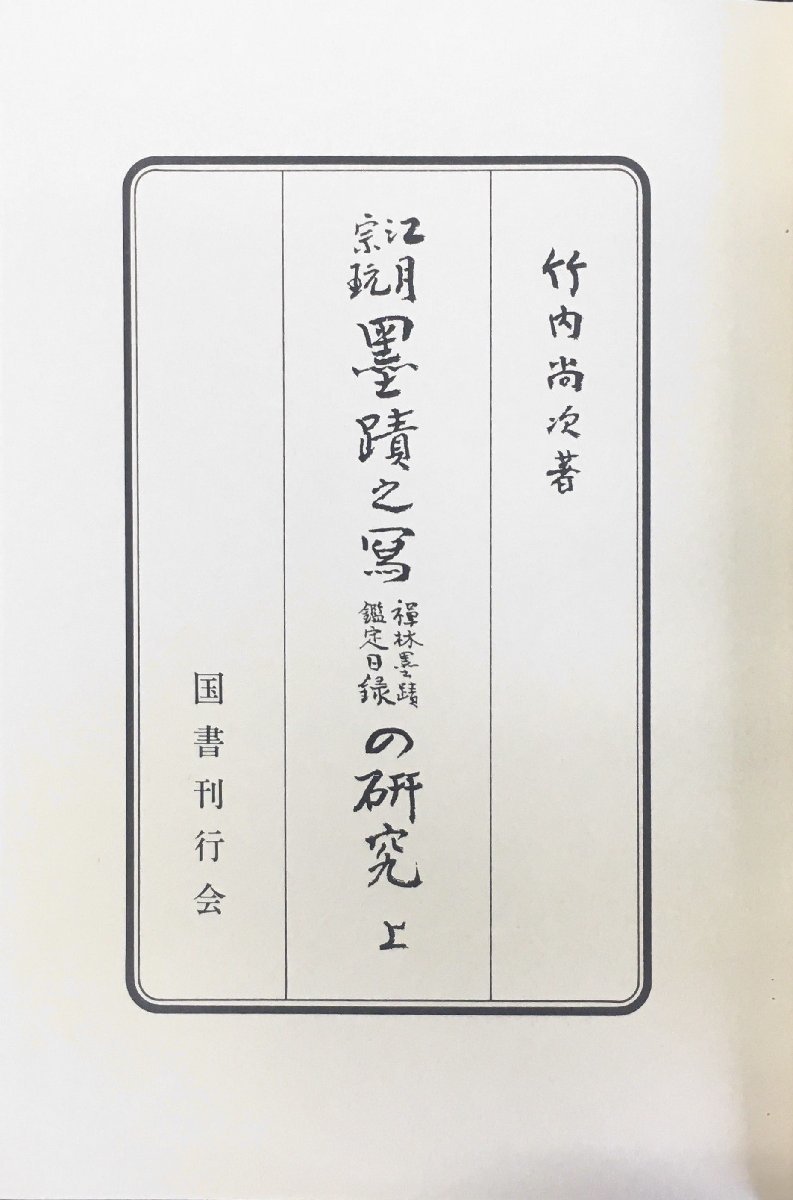 竹内尚次著
江月宗玩 墨蹟之寫 禅林墨蹟鑑定日録 の研究 上
国書刊行会